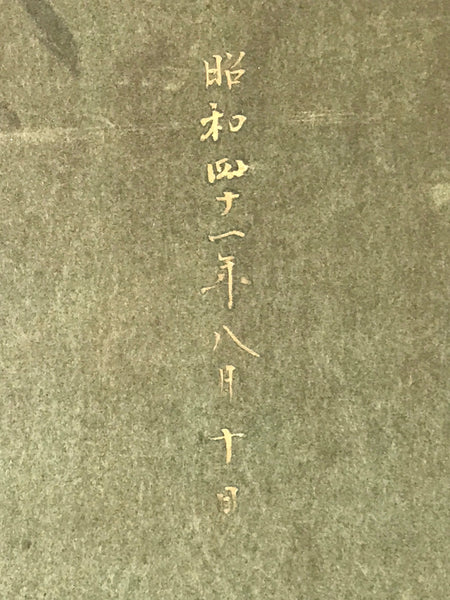 昭和四十一年八月十日